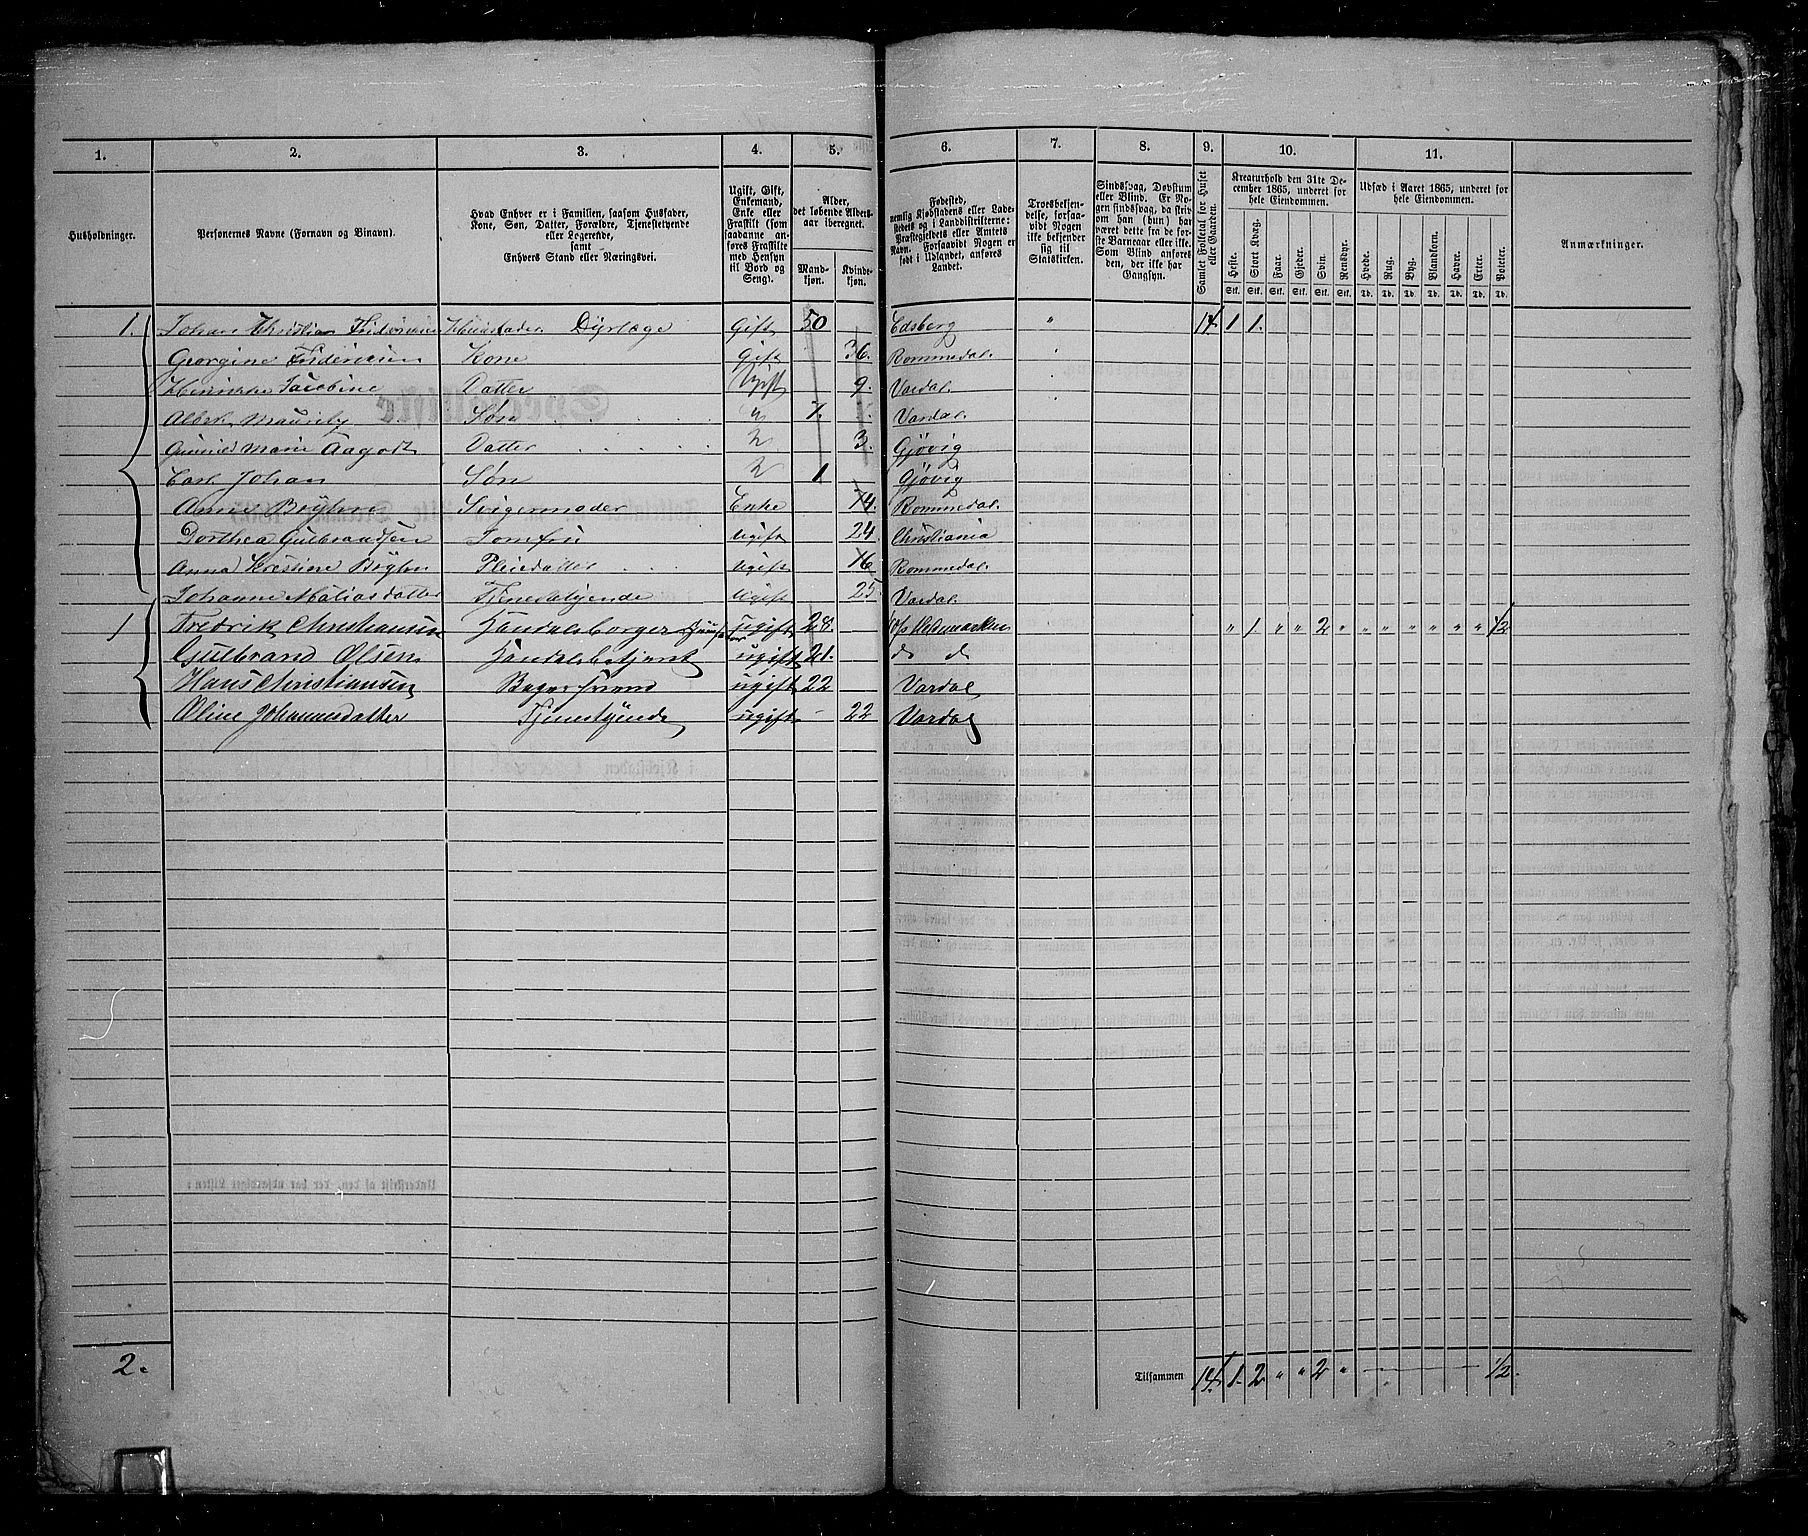 1. 2. 3. 4. 5. 6. 7. 8. 9. 10. 11.
Husholdninger.
Personernes Navne (Fornavn og Binavn).
Hvad Enhver er i Familien, saasom Husfader,
Kone, Søn, Datter, Forældre, Tjenestetyende
eller Logerende,
samt
Enhvers Stand eller Næringsvei.
Ugift, Gift,
Enkemand,
Enke eller
Fraskilt (som
saadanne an-
føres Fraskilte
med Hensyn
til Bord og
Seng).
Alder,
det løbende Alders-
aar iberegnet.
Mand-
kjøn.
Kvinde-
kjøn.
Fødested,
nemlig Kjøbstadens eller Lade-
stedets og i Landdistrikterne:
Præstegjeldets eller Amtets
Navn. Forsaavidt Nogen er
født i Udlandet, anføres
Landet.
Troesbekjen-
delse, forsaa-
vidt Nogen
ikke bekjender
sig til
Statskirken.
Sindssvag, Døvstum
eller Blind. Er No-
gen sindssvag, da skriv
om han (hun) har
været dette fra de før-
ste Barneaar eller ikke.
Som Blind anføres
den, der ikke har
Gangsyn.
Samlet Folketal for Huset
eller Gaarden.
Kreaturhold den 31te De-
cember 1865, underet for
hele Eiendommen.
Heste. Stort Kvæg. Faar. Gjeder. Svin. Rensdyr.
Stk. Stk. Stk. Stk. Stk. Stk.
Udsæd i Aaret 1865, underet for
hele Eiendommen.
Hvede. Rug. Byg. Blandkorn. Havre. Erter. Poteter.
Td. Td. Td. Td. Td. Td. Td.
Anmærkninger.
1. Johan Christian Fridericksen Huusfader Dyrlæge Gift 50 Edsberg " 14 1 1.
Georgine Fridericksen Kone Gift 36. Rommedal.
Henrikke Jacobine Datter Ugift 9. Vardal.
Albert Mauritz Søn " 7. Vardal.
Marie Aagot Datter 3. Gjøvig
Carl Johan Søn 1 Gjøvig
Anne Bryhn Svigermoder Enke 74. Rommedal.
Dorthea Gulbrandsen Jomfru Ugift 24. Christiania
Anna Kristine Bryhn Pleiedatter Ugift 16 Rommedal.
Johanne Mathiasdatter Tjenestetyende Ugift 25 Vardal.
1 Fredrik Christiansen Handelsborger ugift 28. Hedemarken " 1. " " 2 " " " " " " " 1/2
Gulbrand Olsen Handelsbetjent ugift 21. d d
Hans Christiansen Bagersvend ugift 22 Vardal
Oline Johannesdatter Tjenestyende ugift - 22 Vardal
2.
Tilsammen 14. 1. 2 " " 2 " " 1/2.